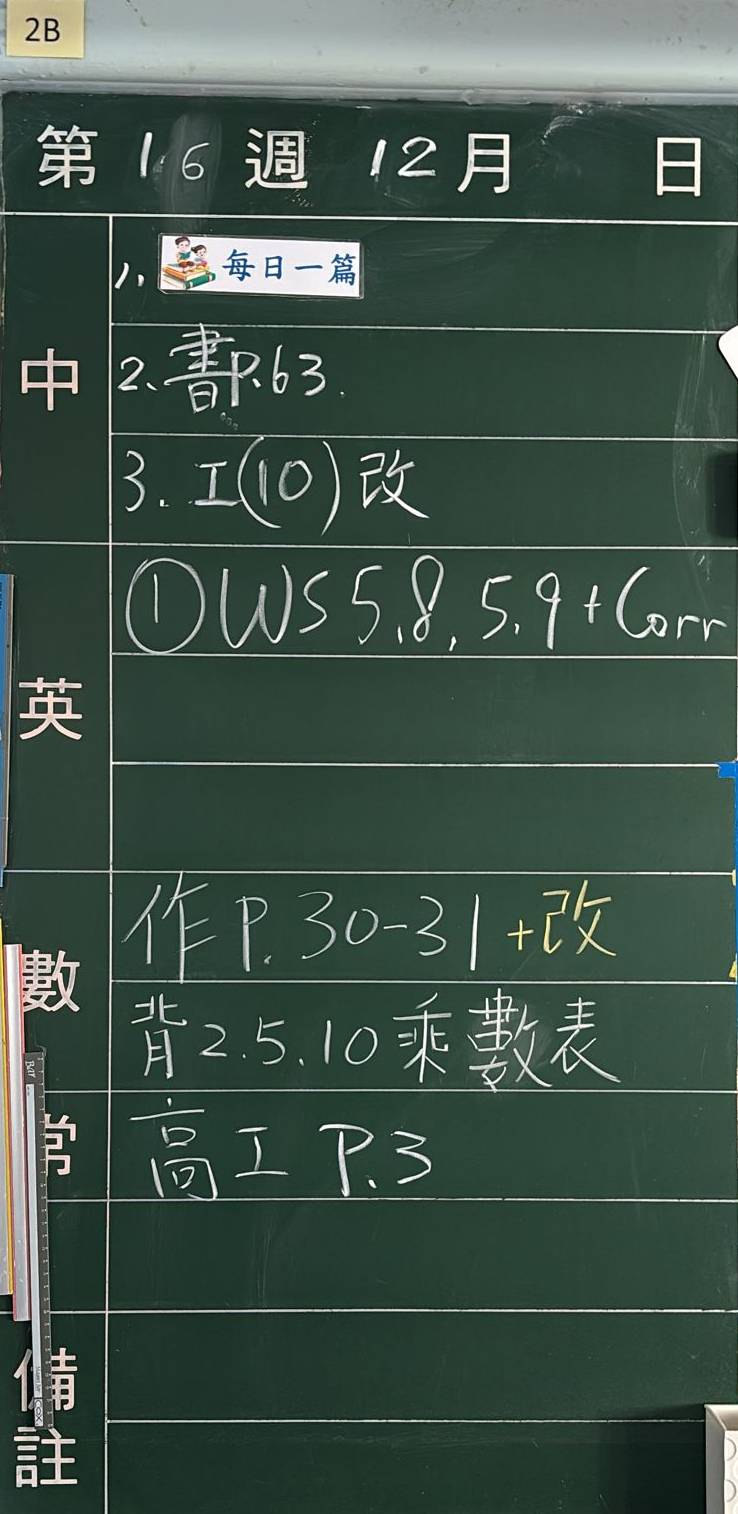 2B
第 16 週 12 月 日
中
1. 每日一篇
2、書P.63.
3. 工(10)改
英
①WS 5.8, 5.9 + Corr
數
作 P. 30-31 +改
背 2.5.10 乘數表
常
高工 P.3
備註